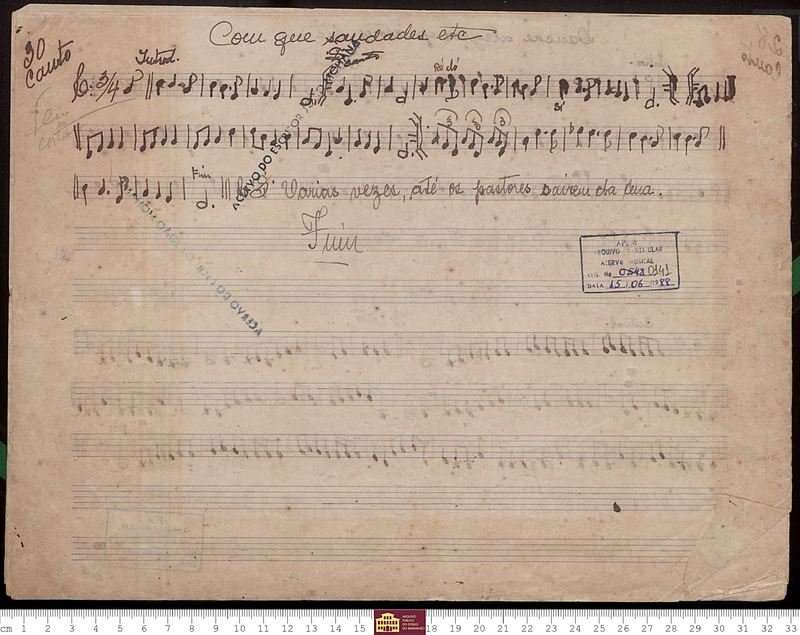 Com que saudades etc
30
Canto
Introd.
3/4
Canto
Ré dó
Si
3 3 3
ACERVO DO ESCRITOR
Fim
Varias vezes, até os pastores sairem da cena.
Fim
APEM
ARQUIVO PARTICULAR
ACERVO MUSICAL
REG. No 0543 0141
DATA 15 / 06 / 1988
cm 1 2 3 4 5 6 7 8 9 10 11 12 13 14 15 18 19 20 21 22 23 24 25 26 27 28 29 30 31 32 33
ARQUIVO
PÚBLICO
DO ESTADO
DO MARANHÃO